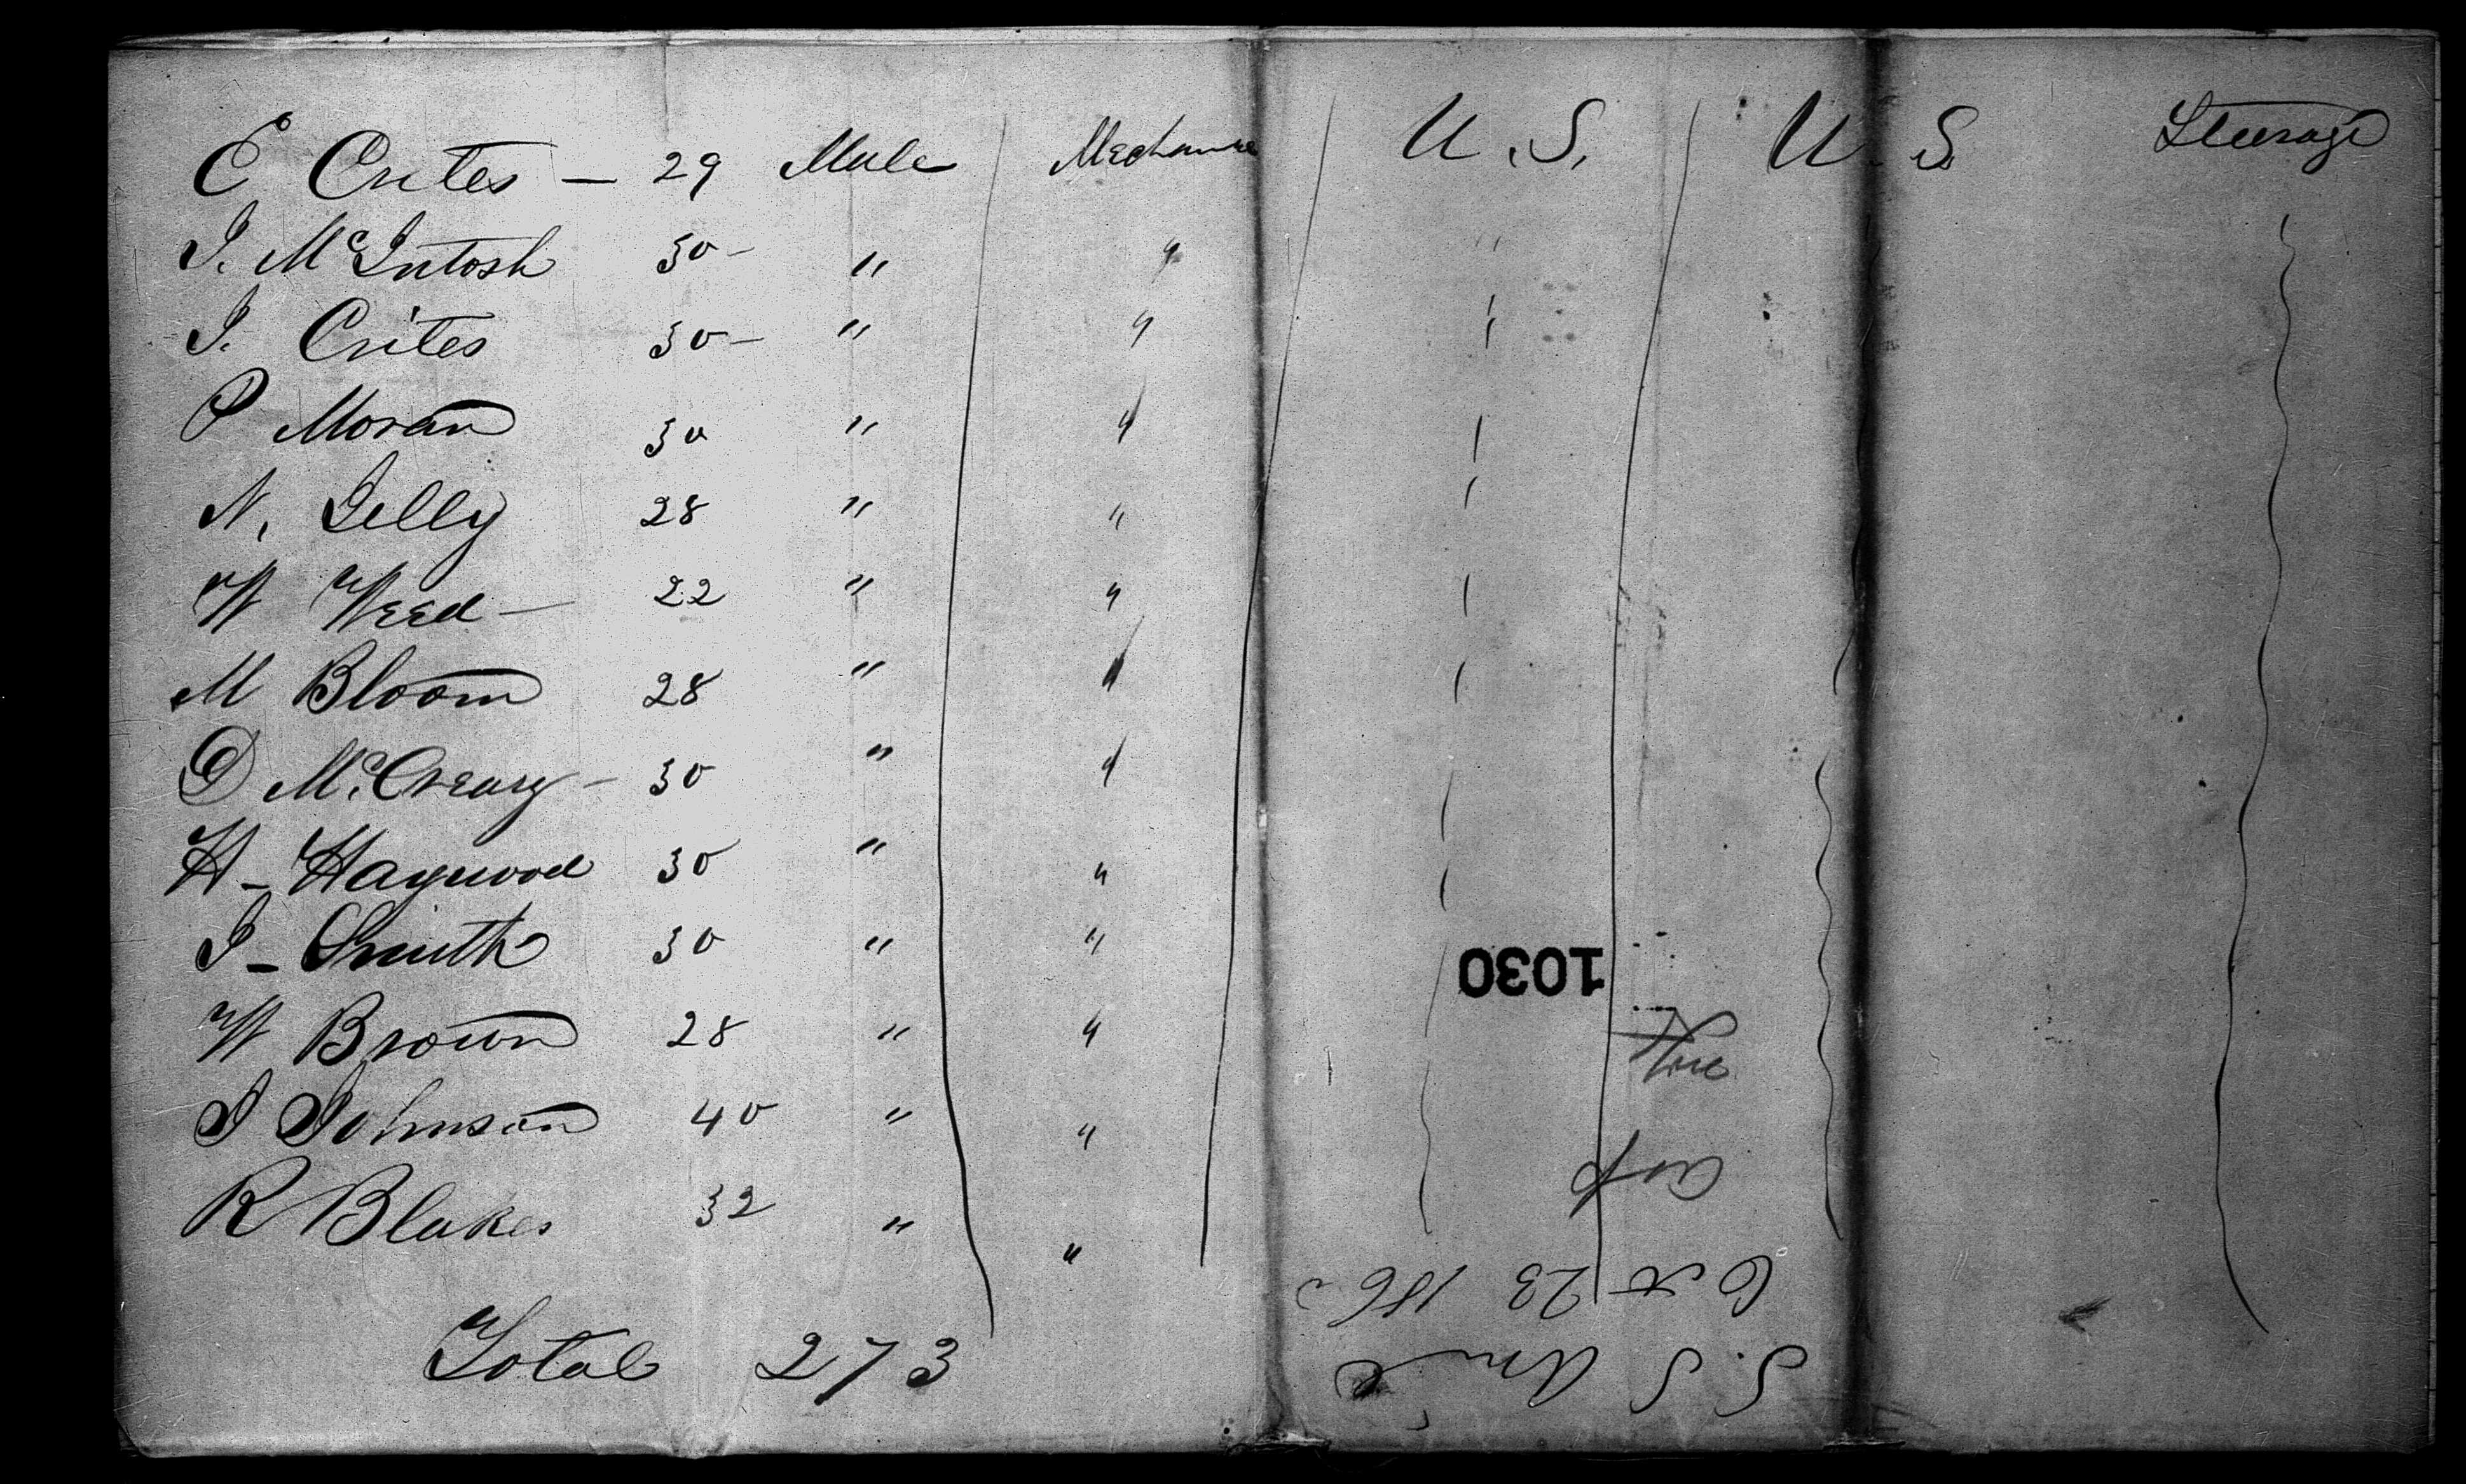 E Crites — 29 Male Mechanic U.S. U.S. Steerage
J. McIntosh 30 — " "
J. Crites 30 — " "
P Moran 30 " "
N. Jelly 28 " "
W Weed — 22 " "
M Bloom 28 " "
D McCreary — 30 " "
H - Haywood 30 " "
J - Smith 30 " "
W Brown 28 " "
J Johnson 40 " "
R Blakes 32 " "
Total 273
S. S
Oct 23 186
1030